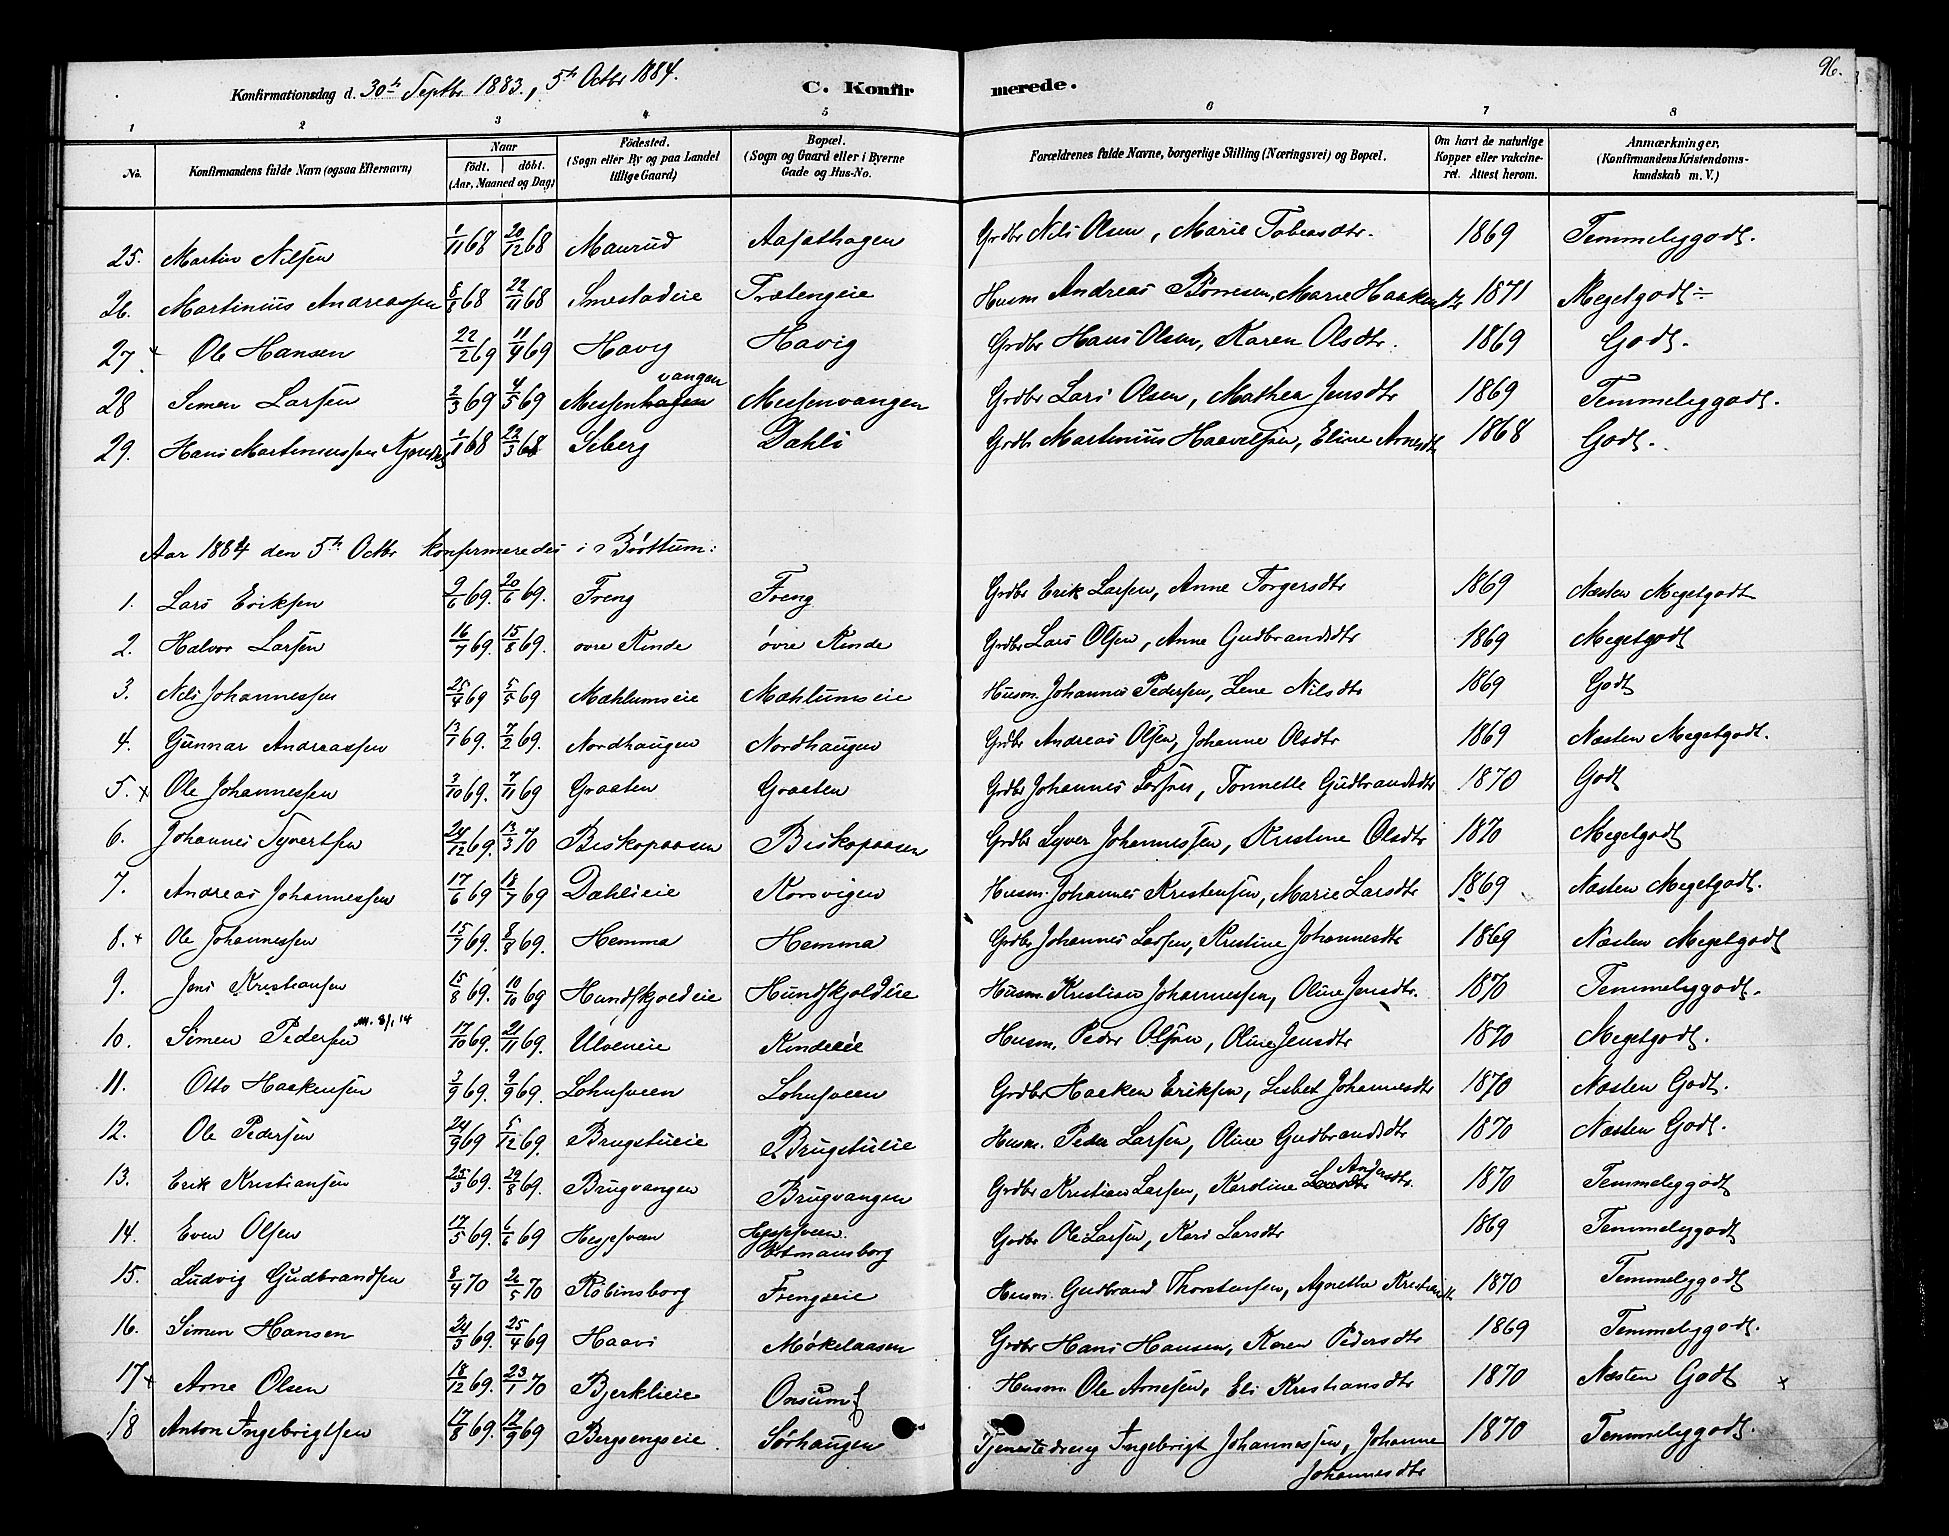 96.
Konfirmationsdag d. 30th Septbr 1883, 5th Octbr 1884. C. Konfirmerede.
1 2 3 4 5 6 7 8
No. Konfirmandens fulde Navn (ogsaa Efternavn) Naar födt. döbt. (Aar, Maaned og Dag) Födested. (Sogn eller By og paa Landet tillige Gaard) Bopæl. (Sogn og Gaard eller i Byerne Gade og Hus-No. Forældrenes fulde Navne, borgerlige Stilling (Næringsvei) og Bopæl. Om havt de naturlige Kopper eller vakcineret. Attest herom. Anmærkninger, (Konfirmandens Kristendomskundskab m. V.)
25. Martin Nilsen 1/11 68 20/12 68 Maurud Aasathagen Grdbr Nils Olsen, Marie Tobiasdtr. 1869 Temmeliggodt.
26. Martinius Andreassen 8/8 68 22/11 68 Smestadeie Trætengeie Husm Andreas Börresen, Marie Haakensdtr 1871 Megetgodt
27 x Ole Hansen 22/2 69 11/4 69 Havig Havig Grdbr Hans Olsen, Karen Olsdtr. 1869 Godt.
28 Simen Larsen 2/3 69 4/5 69 Messenvangen Messenvangen Grdbr Lars Olsen, Mathea Jensdtr 1869 Temmeliggodt.
29. Hans Martinussen 1/1 68 22/3 68 Siberg Dahli Grdb Martinius Haavelsen, Eline Arnesdtr 1868 Godt.
Aar 1884 den 5th Octbr konfirmeredes i Bröttum:
1. Lars Eriksen 9/6 69. 20/6 69. Freng Freng Grdbr Erik Larsen, Anne Torgersdtr 1869 Næsten Megetgodt
2. Halvor Larsen 16/7 69. 15/8 69. øvre Rinde øvre Rinde Grdbr Lars Olsen, Anne Gudbrandsdtr 1869 Megetgodt
3. Nils Johannessen 25/4 69 5/5 69 Mæhlumseie Mæhlumseie Husm Johannes Pedersen, Lene Nilsdtr 1869 Godt
4. Gunnar Andreassen 13/1 69. 7/2 69. Nordhaugen Nordhaugen Grdbr Andreas Olsen, Johanne Olsdtr 1869 Næsten Megetgodt.
5. x Ole Johannessen 3/10 69. 7/11 69 Graaten Graaten Grdbr Johannes Larsen, Tonnette Gudbrandsdtr 1870 Godt
6. Johannes Syvertsen 24/12 69. 13/3 70 Biskopaasen Biskopaasen Grdbr Syver Johannessen, Kristine Olsdtr 1870 Megetgodt
7. Andreas Johannessen 17/6 69 18/7 69 Dahlieie Korsvigen Husm. Johannes Kristensen, Marie Larsdtr 1869 Næsten Megetgodt.
8. x Ole Johannessen 15/7 69. 8/8 69. Hemma Hemma Grdbr Johannes Larsen, Kristine Johannesdtr 1869 Næsten Megetgodt
9. Jens Kristiansen 15/8 69. 10/10 69 Hundskjoldeie Hundskjoldeie Husm. Kristian Johannessen, Oline Jensdtr. 1870 Temmeliggodt.
10. Simen Pedersen 17/10 69. 21/11 69. Ulveneie Rindeeie Husm. Peder Olsen, Oline Jensdtr 1870 Megetgodt.
11. Otto Haakensen 3/9 69. 9/9 69. Lohnsveen Lohnsveen Grdbr Haaken Eriksen, Lisbet Johannesdtr 1870 Næsten Godt.
12. Ole Pedersen 24/9 69 5/12 69. Brugstueie Brugstueie Husm. Peder Larsen, Oline Gudbrandsdtr 1870 Næsten Godt.
13. Erik Kristiansen 25/3 69. 29/8 69. Brugvangen Brugvangen Grdbr Kristian Larsen, Karoline Andersdtr. 1870 Temmeliggodt
14. Even Olsen 17/5 69. 6/6 69 Heggesveen Heggesveen. Grdbr Ole Larsen, Kari Larsdtr 1869 Temmeliggodt
15. Ludvig Gudbrandsen 8/4 70 26/5 70 Robinsborg Frengseie Husm. Gudbrand Thorstensen, Agnethe Kristiansdtr 1870 Temmeliggodt
16. Simen Hansen 24/3 69. 25/4 69 Haavi Møkelaasen Grdbr Hans Hansen, Karen Pedersdtr 1869 Temmeliggodt.
17 x Arne Olsen 18/12 69. 23/1 70 Bjerklieie Onsum Husm. Ole Arnesen, Eli Kristiansdtr 1870 Næsten Godt x
18 Anton Ingebrigtsen 17/8 69. 12/9 69 Bergsengseie. Sörhaugen Tjenestedreng Ingebrigt Johannessen, Johanne Johannesdtr 1870 Temmeliggodt.